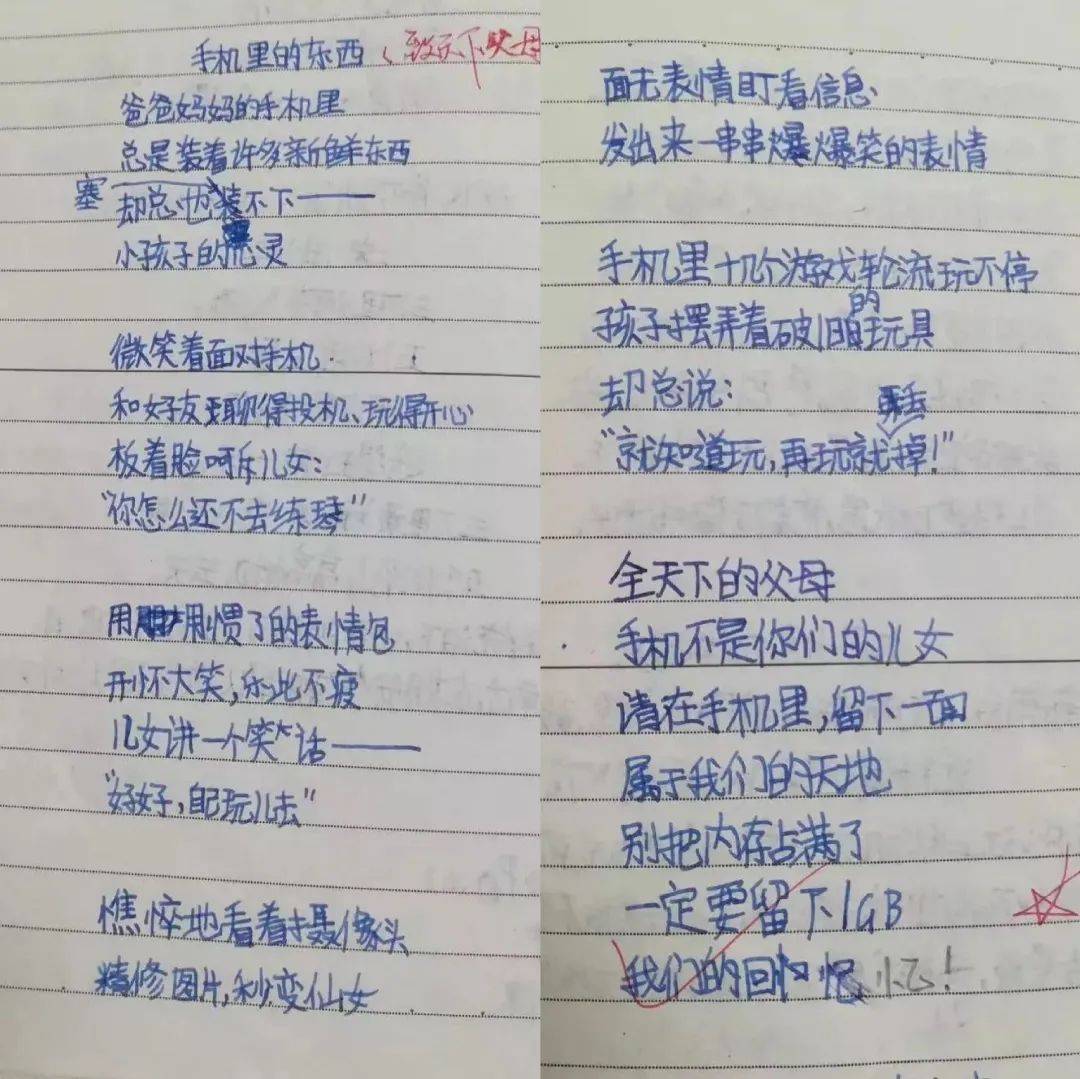 手机里的东西（致天下父母
爸爸妈妈的手机里
总是装着许多新鲜东西
塞
却总也装不下——
小孩子的心灵
微笑着面对手机
和好友聊得投机、玩得开心
板着脸呵斥儿女：
"你怎么还不去练琴"
用用惯了的表情包
开怀大笑，乐此不疲
儿女讲一个笑话——
"好好，自己玩儿去"
憔悴地看着摄像头
精修图片，秒变仙女
面无表情盯着信息
发出来一串串爆爆笑的表情
手机里十几个游戏轮流玩不停
孩子摆弄着破旧的玩具
却总说：
"就知道玩，再玩就丢掉！"
全天下的父母
手机不是你们的儿女
请在手机里，留下一面
属于我们的天地
别把内存占满了
一定要留下1GB
我们的回忆！